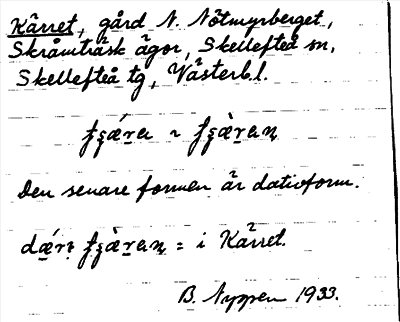 Kärret, gård N. Nötmyrberget,
Skråmträsk ägor, Skellefteå sn,
Skellefteå tg, Västerb.l.
ʈʂǽra ~ ʈʂæ̀raṇ
Den senare formen är dativform.
ʈʂæ̀raṇ = i Kärret.
B. Nyppen 1933.